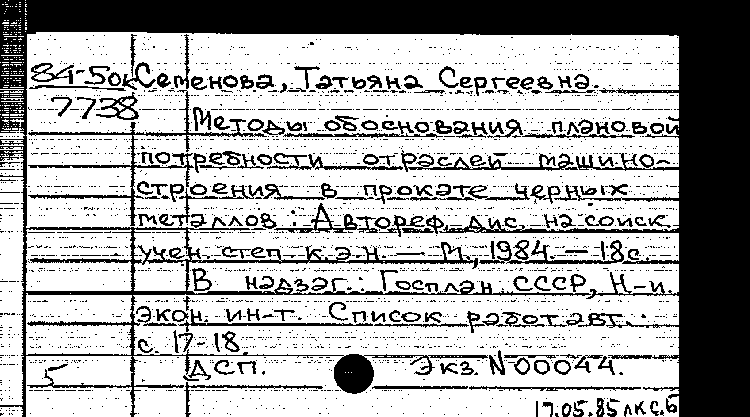 84-5ок Семенова, Татьяна Сергеевна.
7738
Методы обоснования плановой
потребности отраслей машино-
строения в прокате черных
металлов : Автореф. дис. на соиск.
учен. степ. к.э.н. — М., 1984. — 18с.
В надзаг.: Госплан СССР, Н-и.
экон. ин-т. Список работ авт.:
с. 17-18.
5 ДСП. Экз. N 00044.
17.05.85 лк с.б